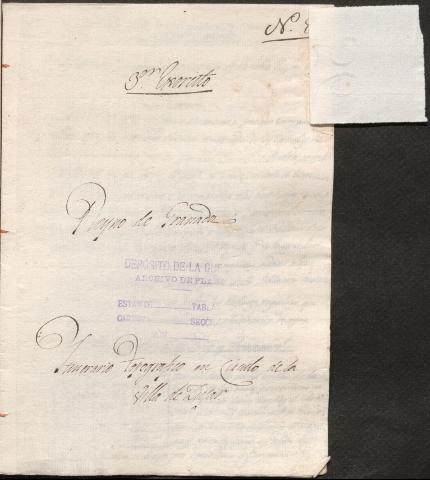 N.º
3.er Exercito
Reyno de Granada
DEPÓSITO DE LA GUE
ARCHIVO DE PLA
ESTAN TABL
CA SECC
Itinerario Topografico en Circulo de la
Villa de